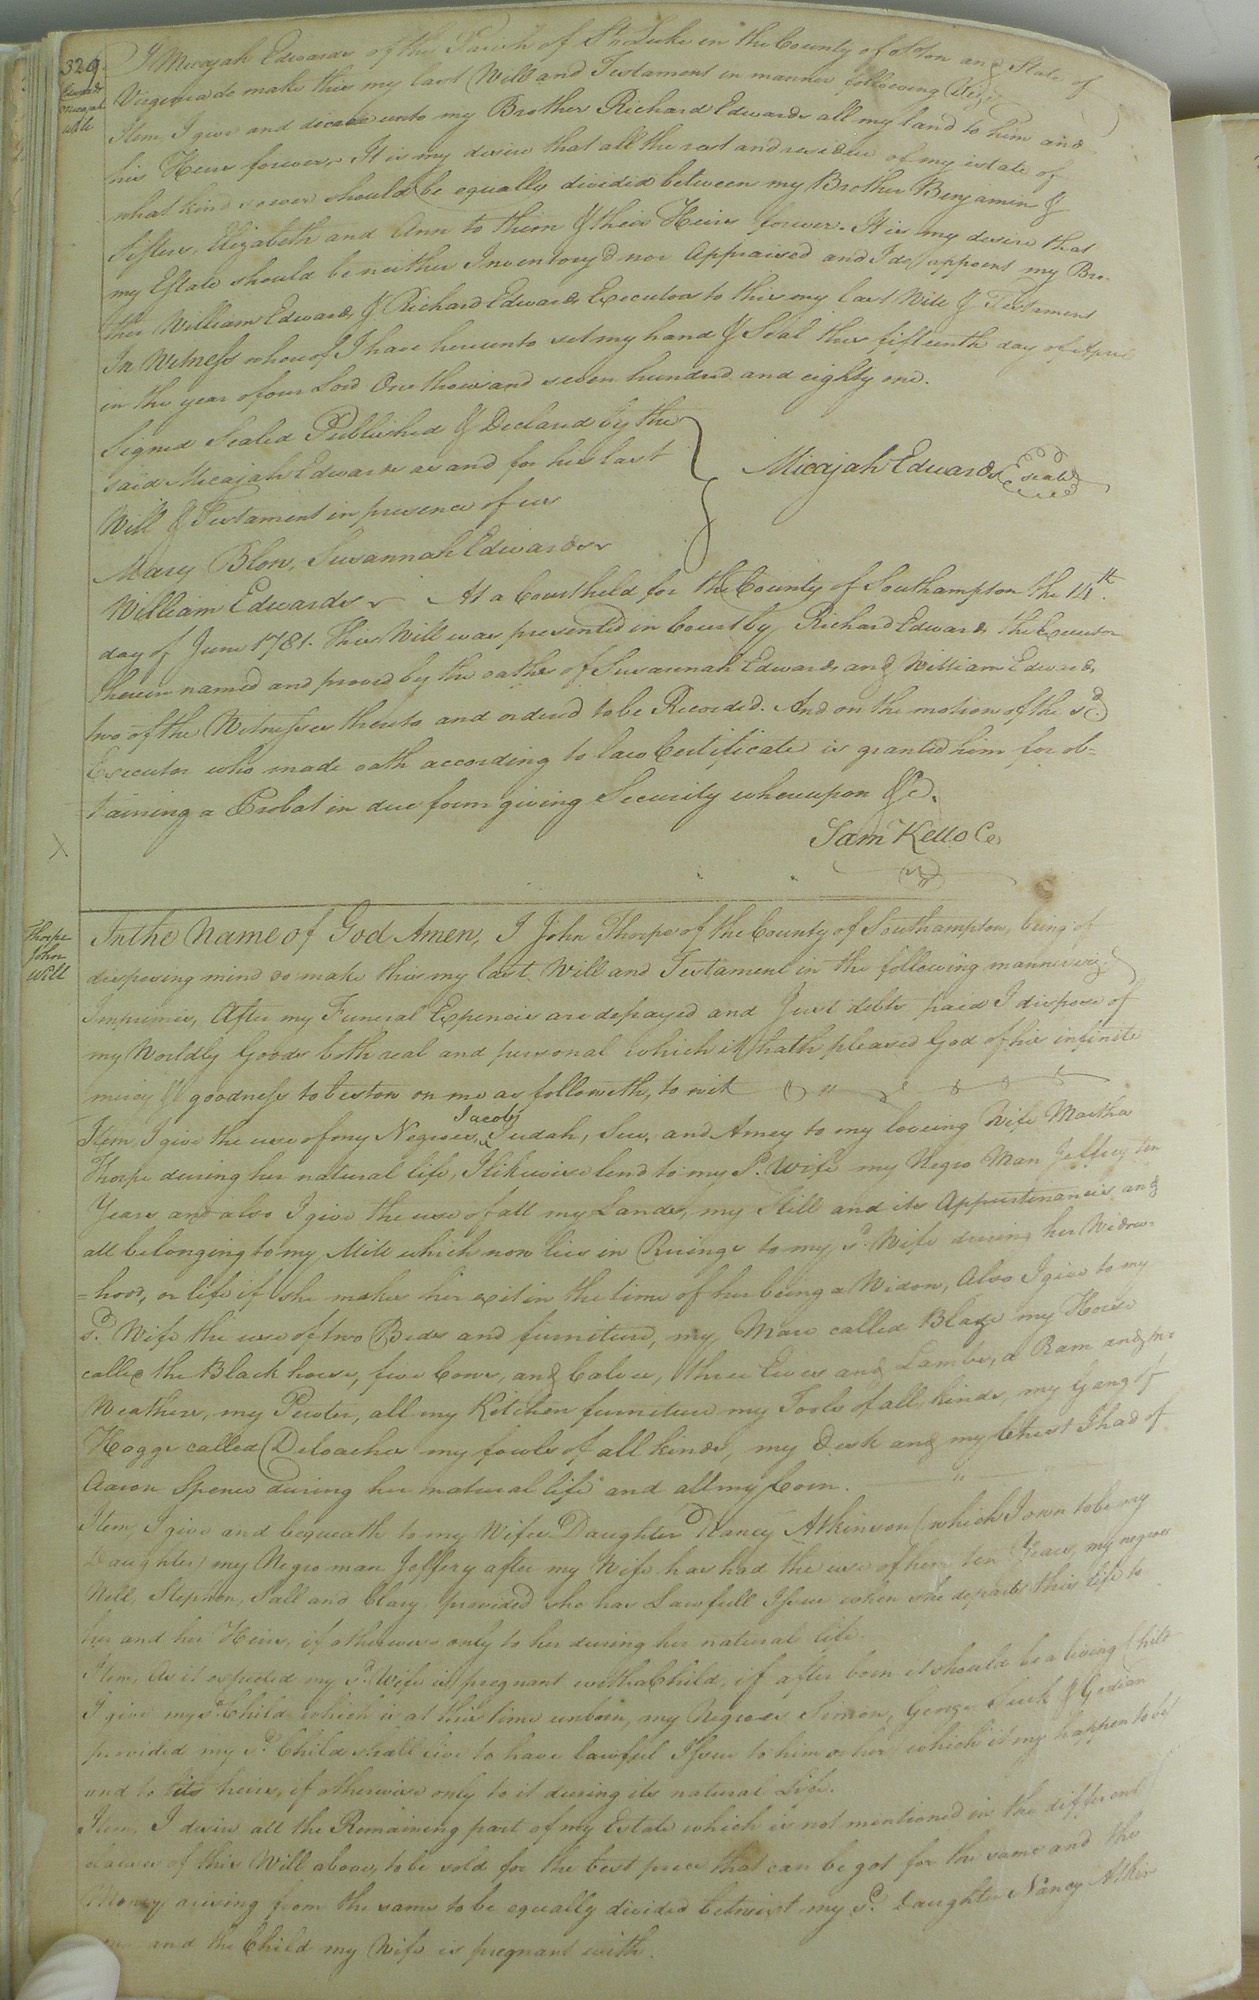 329.
Edwards
Micajah
Will
I Micajah Edwards of the Parish of St. Luke in the County of Soton and State of
Virginia do make this my last Will and Testament in manner following Viz:
Item, I give and devise unto my Brother Richard Edwards all my land to him and
his Heirs forever. It is my desire that all the rest and residue of my estate of
what kind soever should be equally divided between my Brother Benjamin &
Sisters, Elizabeth and Ann to them & their Heirs forever. It is my desire that
my Estate should be neither Inventory'd nor Appraised and I do appoint my Bro-
ther William Edwards & Richard Edwards Executors to this my last Will & Testament
In Witness whereof I have hereunto set my hand & Seal this fifteenth day of April
in the year of our Lord One thousand seven hundred and eighty one.
Signed Sealed Published & Declared by the
said Micajah Edwards as and for his last
Will & Testament in presence of us
Micajah Edwards Seal
Mary Blow, Susannah Edwards
William Edwards At a Court held for the County of Southampton the 14th
day of June 1781. This Will was presented in Court by Richard Edwards the Executor
therein named and proved by the oaths of Susannah Edwards and William Edwards
two of the Witnesses thereto and orderd to be Recorded. And on the motion of the sd.
Executor who made oath according to law Certificate is granted him for ob-
taining a Probat in due form giving Security whereupon &c.
Sam Kello Ce
X
Thorpe
John
Will
In the Name of God Amen, I John Thorpe of the County of Southampton, being of
disposing mind do make this my last Will and Testament in the following manner viz:
Imprimis, After my Funeral Expencis are defrayed and Just debts paid I dispose of
my Worldly Goods both real and personal which it hath pleased God of his infinite
mercy & goodness to bestow on me as followeth, to wit
Item, I give the use of my Negroes, Jacob, Judah, Sue, and Amey to my loveing Wife Martha
Thorpe during her natural life, I likewise lend to my sd. Wife my Negro Man Jeffrey ten
Years and also I give the use of all my Lands, my Still and its Appurtenancis and
all belonging to my Mill which now lies in Ruings to my sd. Wife during her Widow-
=hood, or life if she makes her exit in the time of her being a Widow, Also I give to my
sd. Wife the use of two Beds and furniture, my Mare called Blaze my Horse
called the Black horse, five Cows, and Calves, three Ewes and Lambs, a Ram and
Weathers, my Puter, all my Kitchen furniture my Tools of all kinds, my Gang of
Hoggs called Deloaches my fowls of all kinds, my Desk and my Chest I had of
Aaron Spence during her natural life and all my Corn.
Item, I give and bequeath to my Wifes Daughter Nancy Atkinson (which I own to be my
Daughter) my Negro man Jeffery after my Wife has had the use of him ten Years, my negroes
Nell, Stephen, Sall and Clary provided she has Lawfull Issue when she departs this life to
her and her Heirs, if otherwise only to her during her natural life.
Item, As it expected my sd. Wife is pregnant with a Child, if after born it should be a living Child
I give my sd. Child which is at this time unborn, my Negroes Simon, George & Gedian
provided my sd. Child shall live to have lawful Issue to him or her which it my happen to be
and to its heirs, if otherwise only to it during its natural Life.
Item, I desire all the Remaining part of my Estate which is not mentioned in the different
clauses of this Will above, to be sold for the best price that can be got for the same and the
Money arising from the same to be equally divided betwixt my sd. Daughter Nancy Atkin
and the Child my Wife is pregnant with.